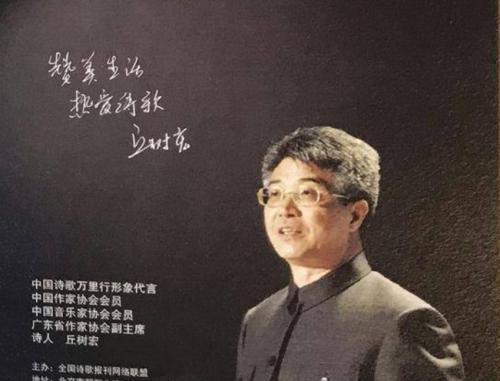 赞美生活
热爱诗歌
丘树宏
中国诗歌万里行形象代言
中国作家协会会员
中国音乐家协会会员
广东省作家协会副主席
诗人 丘树宏
主办：全国诗歌报刊网络联盟
地址：北京